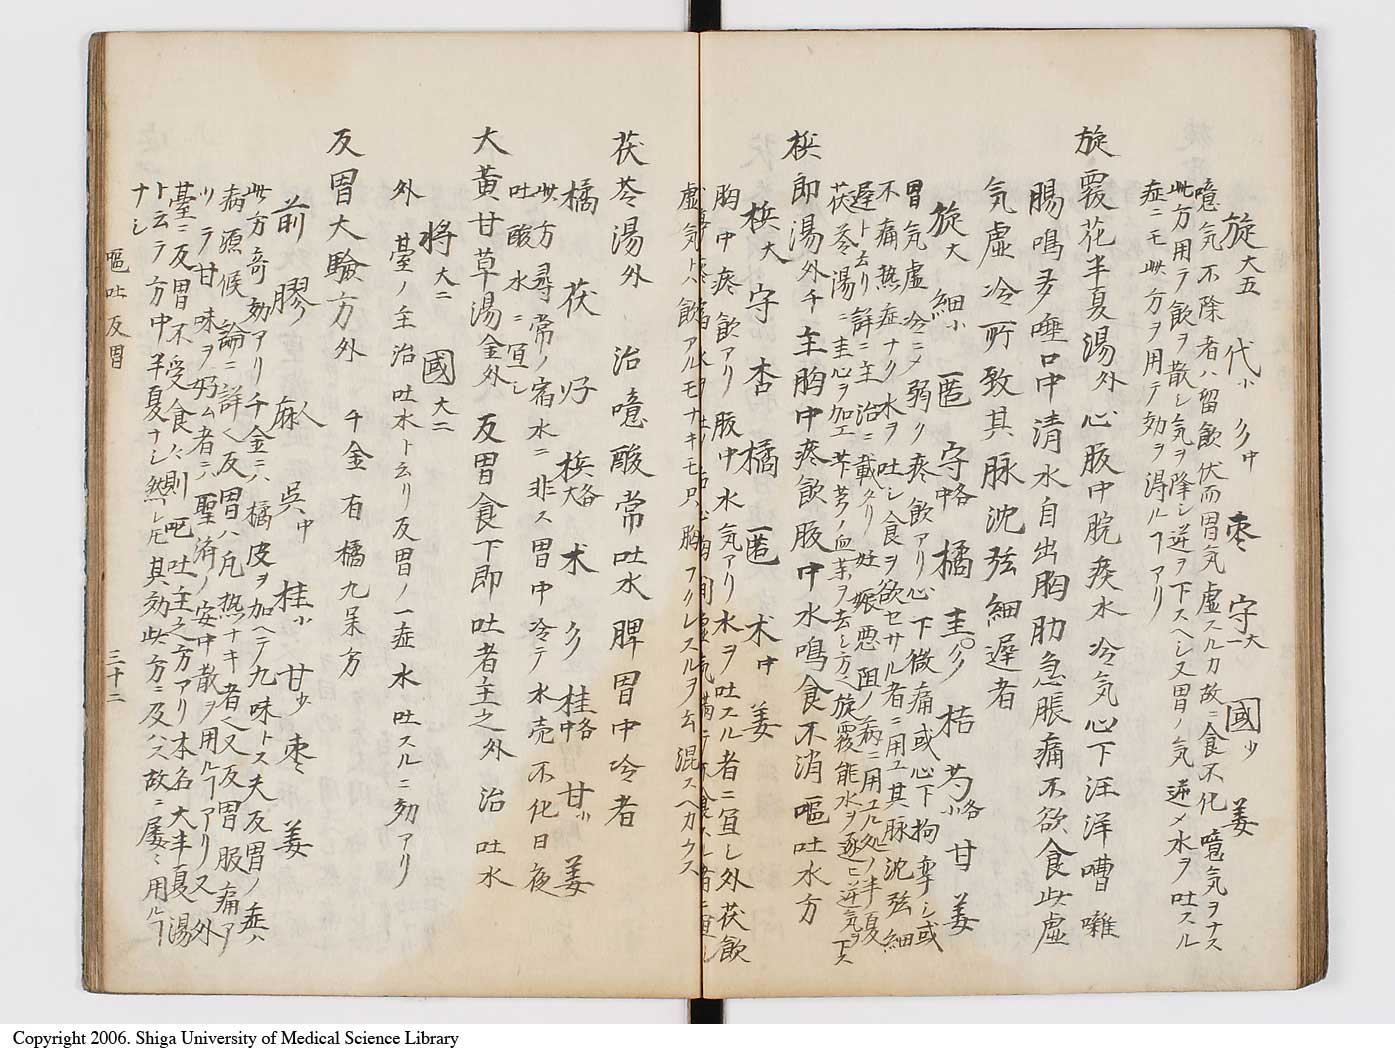 旋大五 代小 彡中 枣 守大一 國少 姜
噫気不除者ハ留飲伏而胃気虚スルカ故ニ食不化噫気ヲナス
此方用テ飲ヲ散シ気ヲ降シ逆ヲ下スヘシ又胃ノ気逆メ水ヲ吐スル
症ニモ此方ヲ用テ効ヲ得ルヿアリ
旋覆花半夏湯外 心腹中脘痰水冷気心下汪洋嘈囃
腸鳴多唾口中清水自出胸肋急脹痛不欲食此虚
気虚冷所致其脉沈弦細遅者
旋大 細小 匿 守中各 橘 圭彡 桔 芍小各 甘 姜
胃気虚冷ニメ弱ク痰飲アリ心下微痛或心下拘挛シ或
不痛熱症ナク水ヲ吐シ食ヲ欲セサル者ニ用ユ其脉沈弦細
遅ト云リ詳ニ主治ニ載タリ妊娠悪阻ノ病ニ用エル処ノ半夏
茯苓湯ニ圭心ヲ加エ芐芎ノ血薬ヲ去シ方ヘ旋覆能水ヲ逐ヒ逆気ヲ下ス
梹郎湯外千 主胸中痰飲腹中水鳴食不消嘔吐水方
梹大 守 杏 橘 匿一 术中 姜
胸中痰飲アリ腹中水気アリ水ヲ吐スル者ニ宜シ外茯飲
虚気トハ飲アルモナキモ只胸フクレスルヲ云混スヘカラス
茯苓湯外 治噫酸常吐水脾胃中冷者
橘 茯 好 梹大各 术 彡 桂中各 甘小 姜
此方尋常ノ宿水ニ非ス胃中冷テ水売不化日夜
吐酸水ニ宜シ
大黄甘草湯金外 反胃食下即吐者主之外治吐水
将大二 國大二
外臺ノ主治吐水ト云リ反胃ノ一症水吐スルニ効アリ
反胃大驗方外 千金有橘九味方
前膠 麻人 呉中 桂小 甘少 枣 姜
此方奇効アリ千金ニハ橘皮ヲ加ヘテ九味トス夫反胃ノ症ハ
病源候論ニ詳ク反胃ハ凡熱ナキ者ヘ又反胃腹痛ア
リテ甘味ヲ好ム者ニ聖済ノ安中散ヲ用ルヿアリ又外
臺ニ反胃不受食々則吐主之方アリ本名大半夏湯
ト云ラ方中半夏ナシ然レ𪜈其効此方ニ及ハス故ニ屡々用ルヿ
ナシ
嘔吐反胃 三十二
Copyright 2006. Shiga University of Medical Science Library